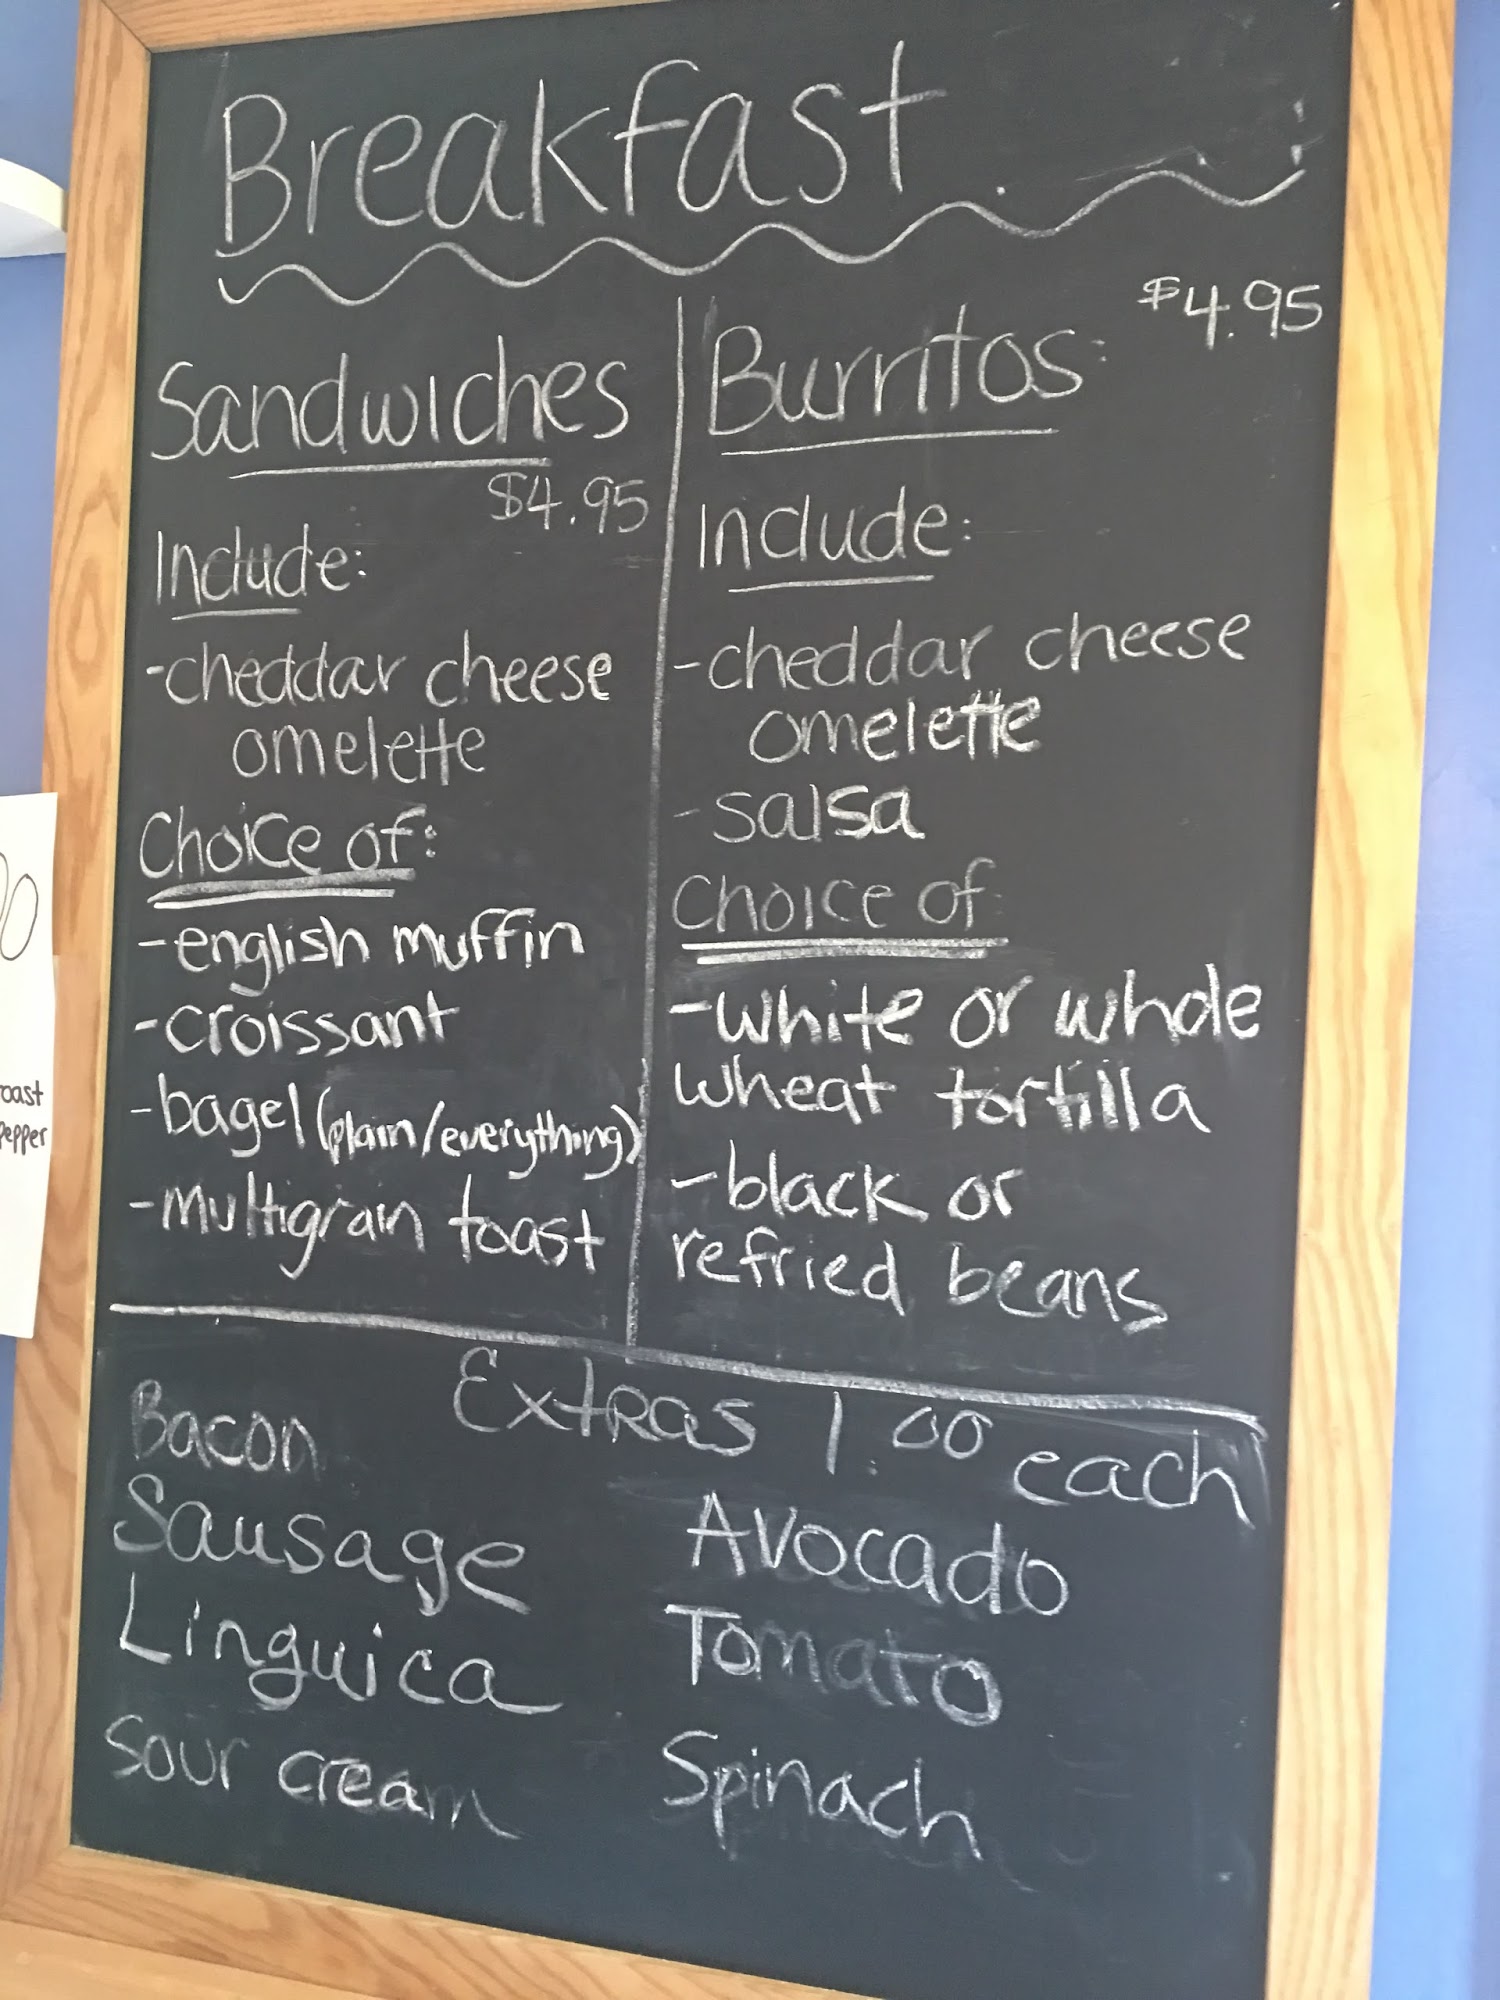 Breakfast
Sandwiches
$4.95
Include:
-cheddar cheese
omelette
Choice of:
-english muffin
-croissant
-bagel (plain/everything)
-multigrain toast
Burritos:
$4.95
Include:
-cheddar cheese
omelette
-salsa
Choice of:
-white or whole
wheat tortilla
-black or
refried beans
Extras 1.00 each
Bacon
Sausage
Linguica
Sour cream
Avocado
Tomato
Spinach
pepper